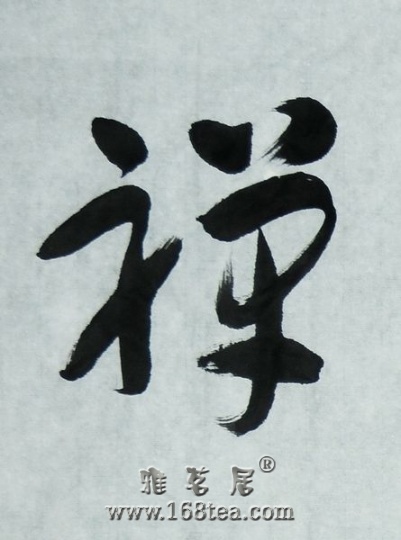 禅
雅茗居®
www.168tea.com